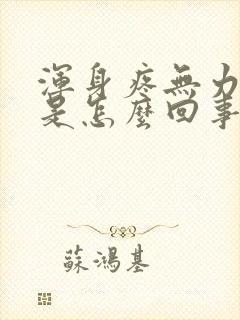 渾身疼無力
是怎麼回事
蘇鴻基